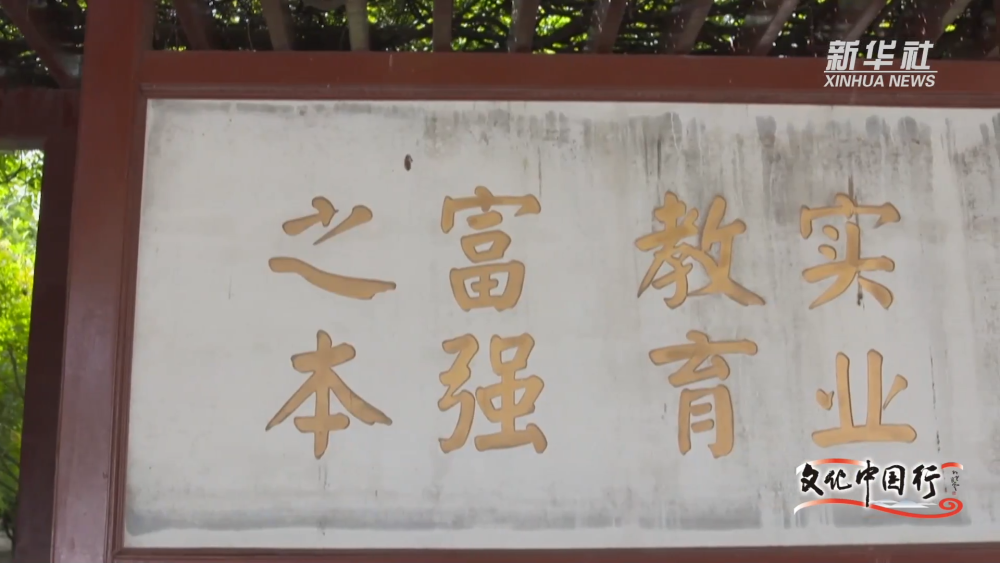 新华社
XINHUA NEWS
实业
教育
富强
之本
文化中国行